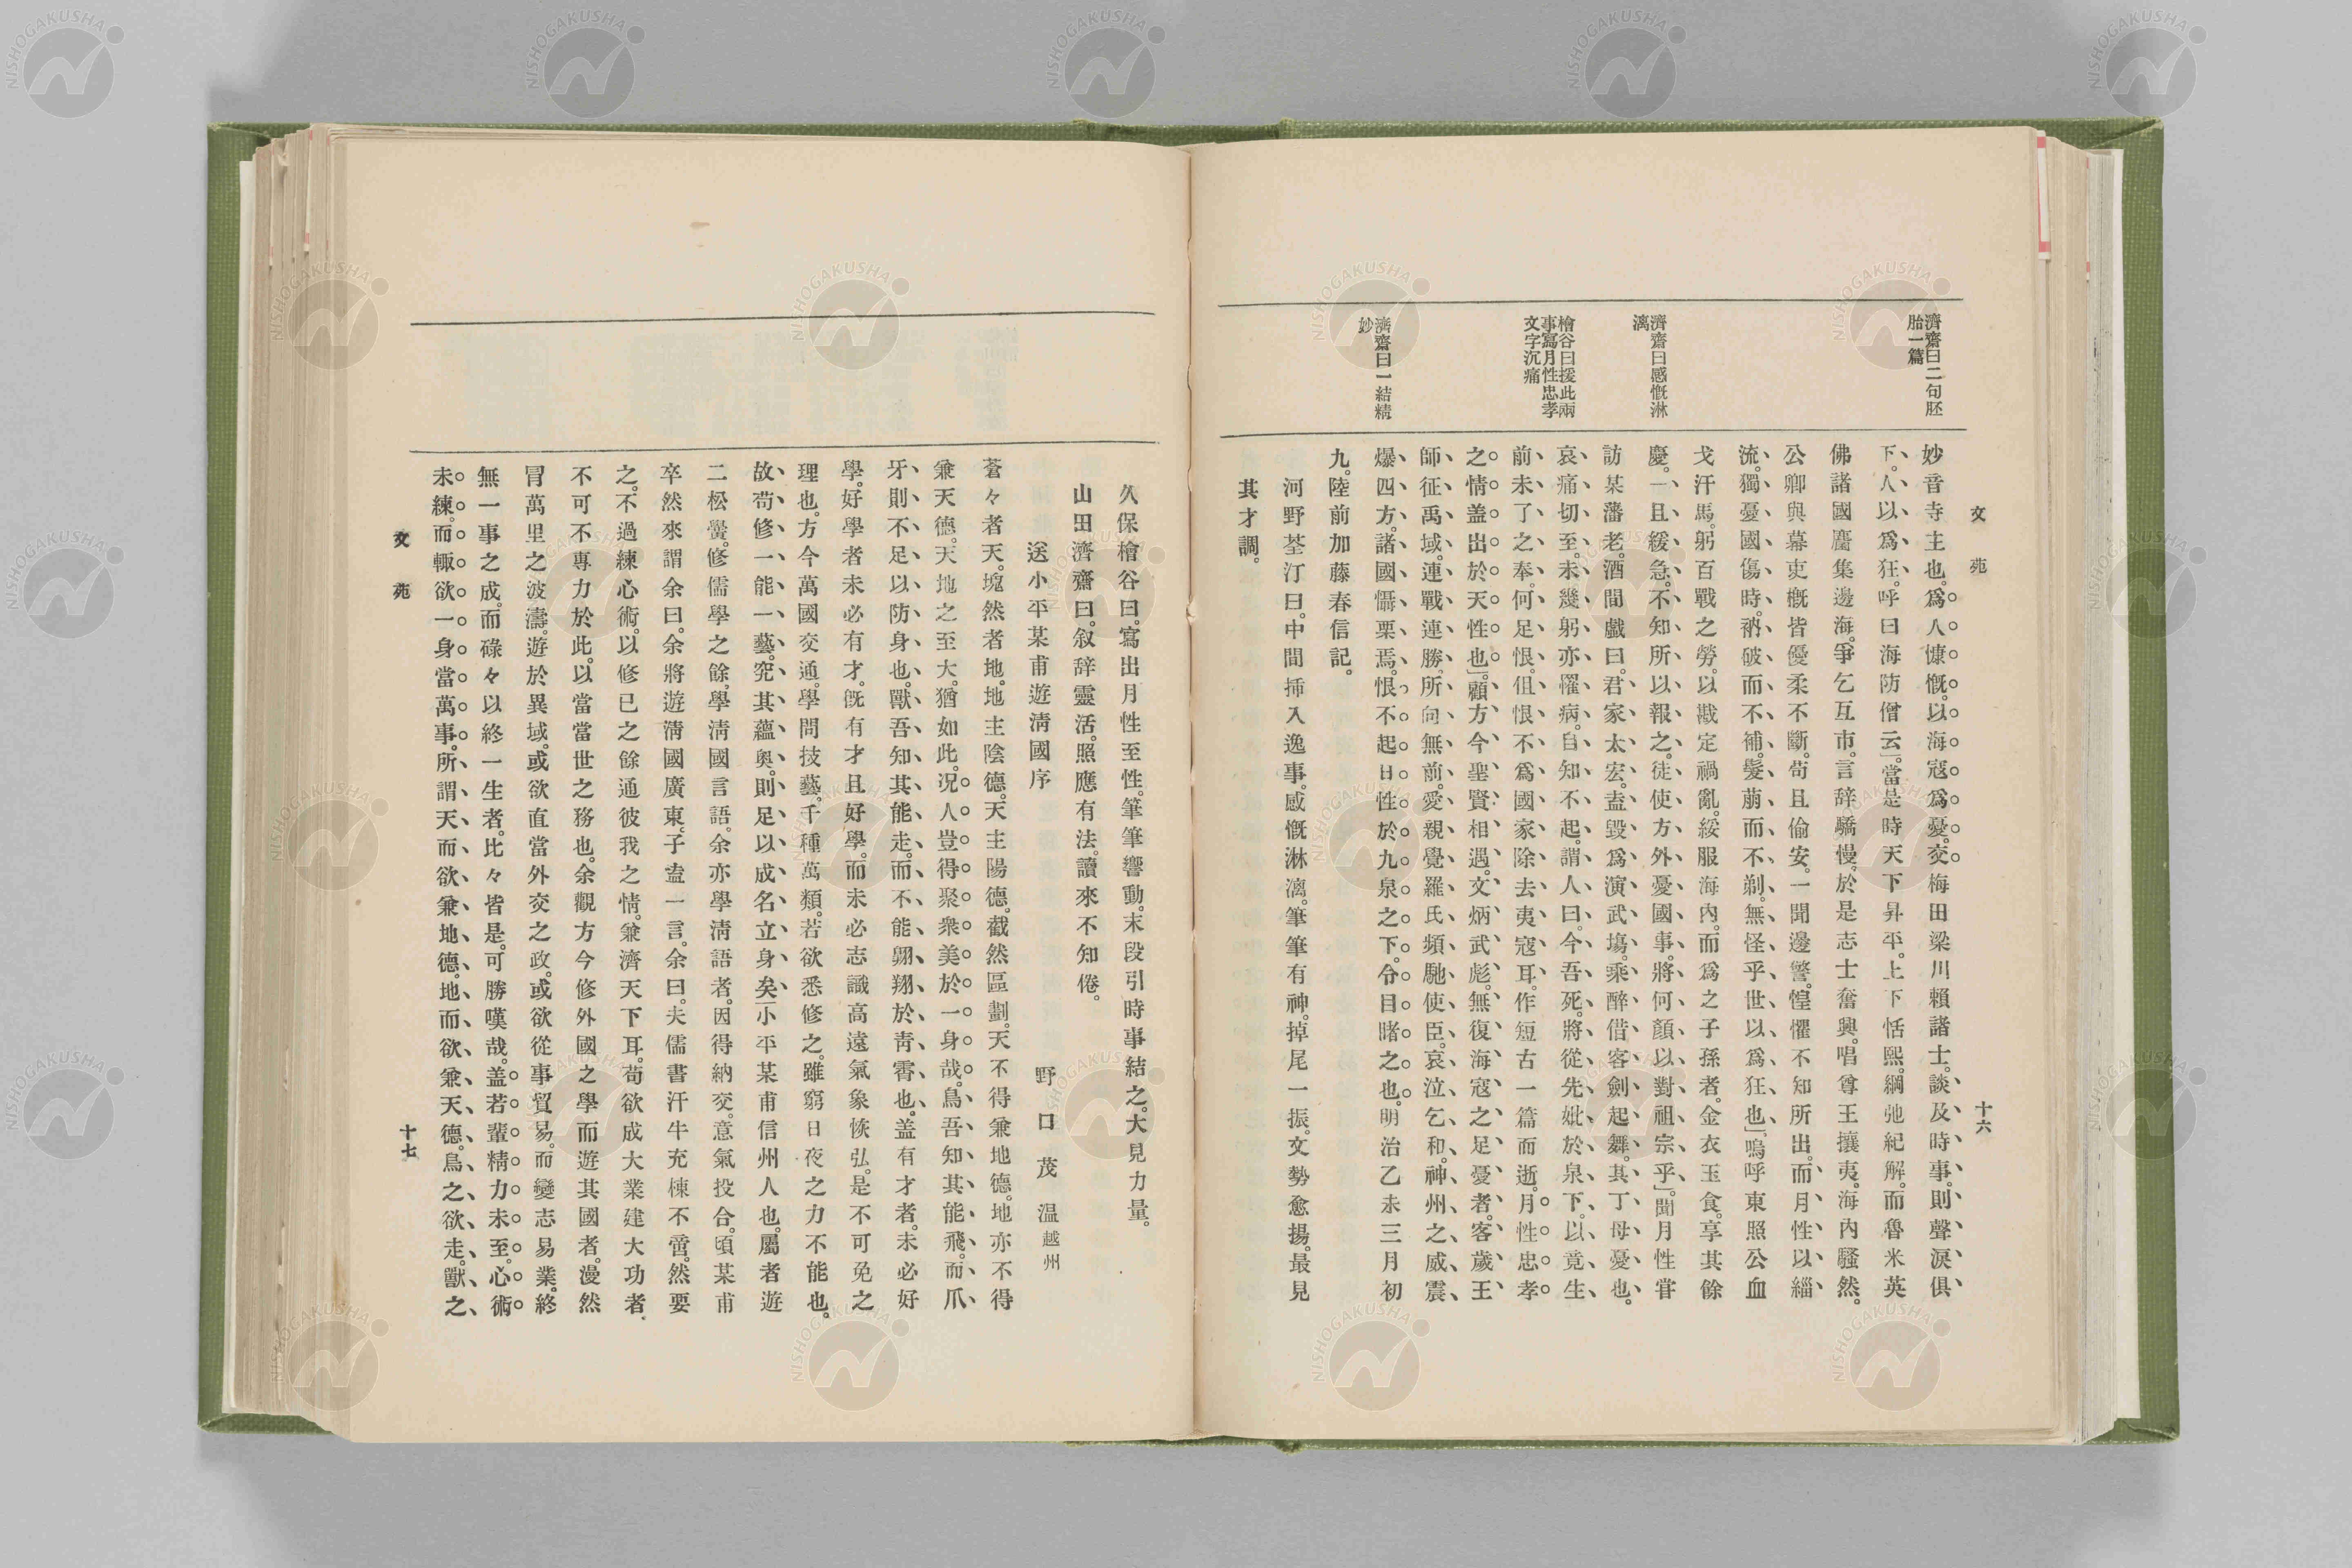 文苑
十六
濟齋曰二句胚
胎一篇
濟齋曰感慨淋
漓
檜谷曰援此兩
事寫月性忠孝
文字沉痛
濟齋曰一結精
妙
妙音寺主也。爲人慷慨。以海寇爲憂。交梅田梁川賴諸士。談及時事。則聲淚俱
下、人以爲狂。呼曰海防僧云」當是時天下昇平。上下恬熙。綱弛紀解。而魯米英
佛諸國麕集邊海。爭乞互市。言辞驕慢。於是志士奮興。唱尊王攘夷。海內騷然。
公卿與幕吏槪皆優柔不斷。苟且偷安。一聞邊警。惶懼不知所出。而月性以緇
流。獨憂國傷時。衲破而不補。髮葫而不剃。無怪乎世以爲狂也」嗚呼東照公血
戈汗馬。躬百戰之勞。以戡定禍亂。綏服海內。而爲之子孫者。金衣玉食。享其餘
慶。一且緩急。不知所以報之。徒使方外憂國事。將何顏以對祖宗乎」。聞月性甞
訪某藩老。酒間戲曰。君家太宏。盍毀爲演武塲。乘醉借客劍起舞。其丁母憂也。
哀痛切至。未幾躬亦罹病。自知不起。謂人曰。今吾死。將從先妣於泉下。以竟生
前未了之奉。何足恨。但恨不爲國家除去夷寇耳。作短古一篇而逝。月性忠孝
之情。盖出於天性也」。顧方今聖賢相遇。文炳武彪。無復海寇之足憂者。客歲王
師征禹域。連戰連勝。所向無前。愛親覺羅氏頻馳使臣。哀泣乞和。神州之威震
爆四方。諸國懾栗焉。恨不起日性於九泉之下。令目睹之也。明治乙未三月初
九。陸前加藤春信記。
河野荃汀曰。中間挿入逸事。感慨淋漓。筆筆有神。掉尾一振。文勢愈揚。最見
其才調。
久保檜谷曰。寫出月性至性。筆筆響動。末段引時事結之。大見力量。
山田濟齋曰。叙辞靈活。照應有法。讀來不知倦。
送小平某甫遊淸國序
野口茂温越州
蒼々者天。塊然者地。地主陰德。天主陽德。截然區劃。天不得兼地德。地亦不得
兼天德。天地之至大。猶如此。況人豈得聚衆美於一身哉。鳥吾知其能飛。而爪
牙則不足以防身也。獸吾知其能走。而不能翺翔於靑霄也。盖有才者。未必好
學。好學者未必有才。旣有才且好學。而未必志識高遠氣象恢弘。是不可免之
理也。方今萬國交通。學問技藝。千種萬類。若欲悉修之。雖窮日夜之力不能也。
故苟修一能一藝。究其蘊奧。則足以成名立身矣」小平某甫信州人也。屬者遊
二松黌。修儒學之餘。學淸國言語。余亦學淸語者。因得納交。意氣投合。頃某甫
卒然來謂余曰。余將遊淸國廣東。子盍一言。余曰。夫儒書汗牛充棟不啻。然要
之。不過練心術。以修已之餘通彼我之情。兼濟天下耳。苟欲成大業建大功者。
不可不專力於此。以當當世之務也。余觀方今修外國之學而遊其國者。漫然
冒萬里之波濤。遊於異域。或欲直當外交之政。或欲從事貿易。而變志易業。終
無一事之成。而碌々以終一生者。比々皆是。可勝嘆哉。盖若輩精力未至。心術
未練。而輙欲一身當萬事。所謂天而欲兼地德。地而欲兼天德。鳥之欲走。獸之
文苑
十七